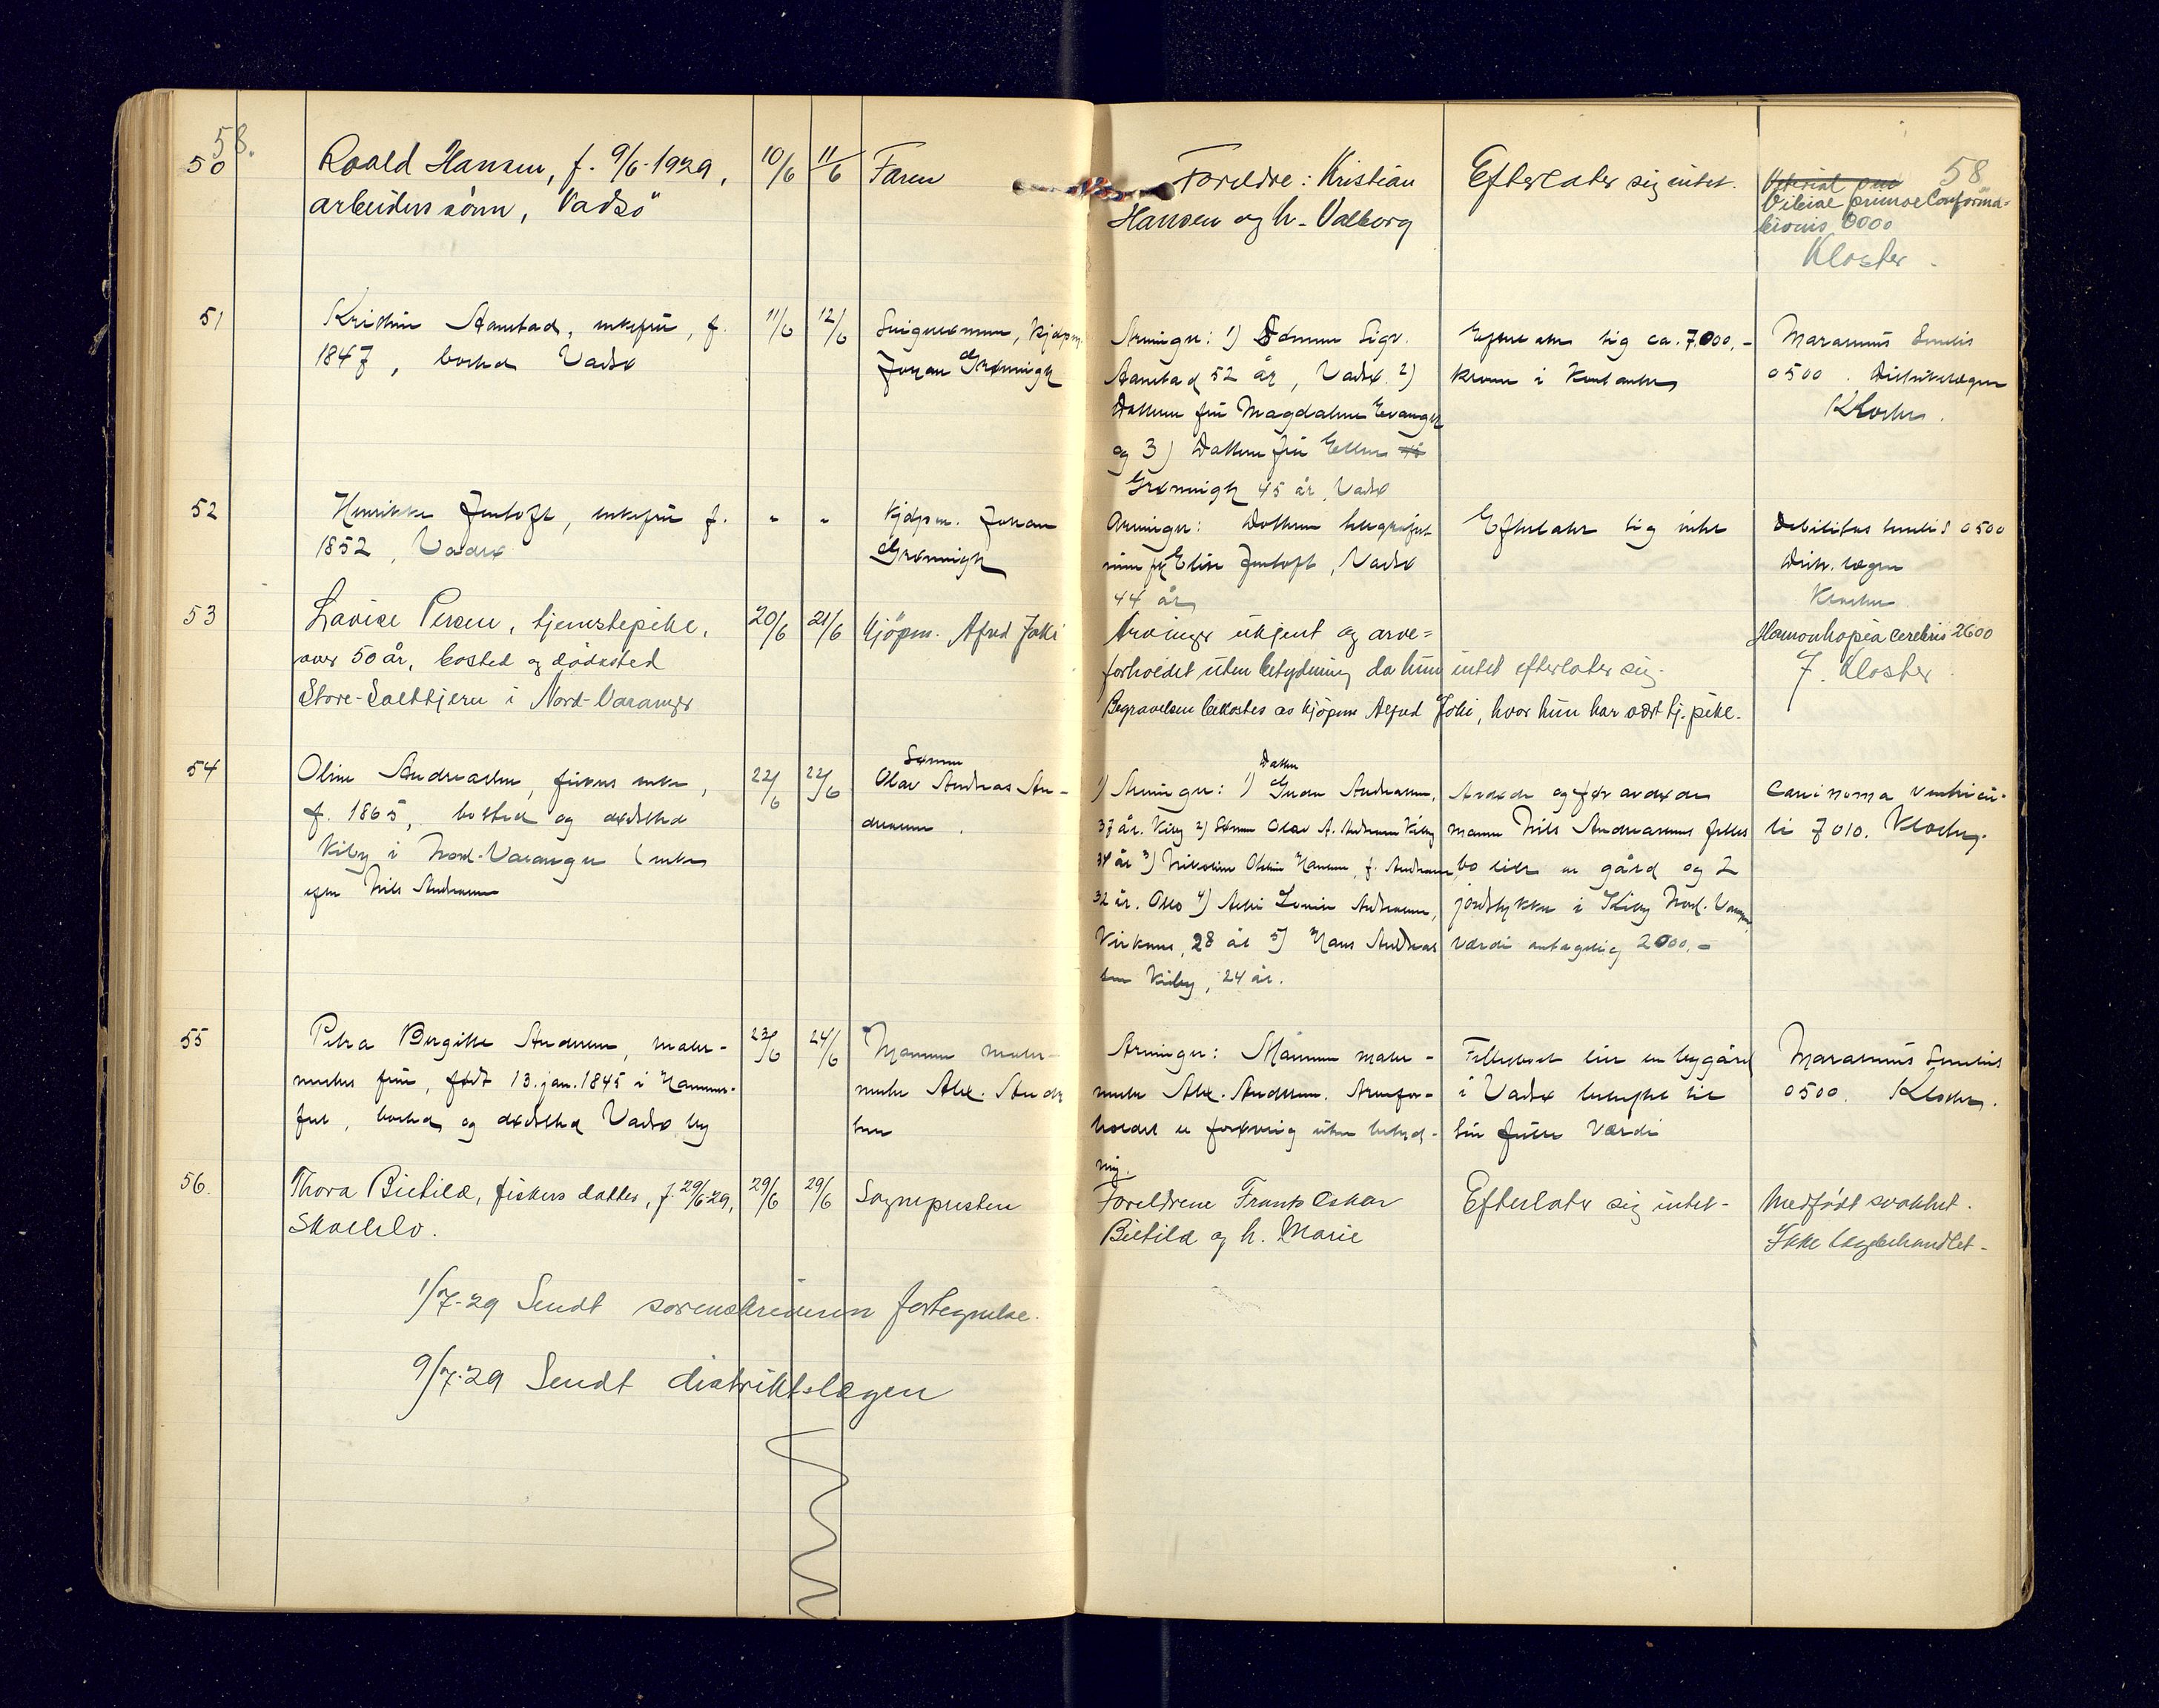 58.
50
Roald Hansen, f. 9/6-1929,
arbeiders sönn, Vadsö
10/6
11/6
Faren
Foreldre: Kristian
Hansen og h. Valborg
Efterlater sig intet.
58
Vitiae primae Conforma-
tionis 0000
Kloster
51
Kristine Aanstad, enkefru, f.
1847, bosted Vadsø
11/6
12/6
Svigersønnen, kjøpm.
Johan Grønnigh
Arvinger: 1) Sønnen Sigv.
Aanstad 52 år, Vadsø. 2)
Datteren fru Magdalene Evangh
og 3) Datteren fru Ellen
Grønnigh 45 år, Vadsø
Efterlater sig ca. 7.000,-
kroner i kontanter
Marasmus senilis
0500. Distriktslægen
Kloster.
52
Henrikke Jentoft, enkefru f.
1852, Vadsø
"
"
Kjøpm. Johan
Grønnigh
Arvinger: Datteren telegrafist-
inne frk Elise Jentoft, Vadsø
44 år
Efterlater sig intet
Debilitas senilis 0500
Distr. lægen
Kloster
53
Lovise Persen, tjenestepike,
over 50 år, bosted og dödssted
Store-Saltbjern i Nord-Varanger
20/6
21/6
Kjöpm. Alfred Joki
Arvinger ukjent og arve=
forholdet uten betydning da hun intet efterlater sig.
Begravelsen bekostes av kjöpm Alfred Joki, hvor hun har vært tj.pike.
Hæmorrhagia cerebri 2600
F. Kloster
54
Oline Andreassen, fiskers enke,
f. 1865, bosted og dødssted
Kiby i Nord-Varanger (enke
efter Nils Andreassen
22/6
22/6
Sønnen
Olav Andreas An-
dreassen.
Datter
1) Arvinger: 1) Andreassen,
37 år. Kiby 2) Sønnen Olav A. Andreassen Kiby
34 år 3) Hansen, f. Andreassen
32 år. Oslo 4) Andreassen,
28 år 5) Hans Andreas
sen Kiby, 24 år.
Avdøde og før avdøde
mann Nils Andreassens felles
bo eier en gård og 2
jordstykker i Kiby Nord-Varanger
værdi antagelig 2000.-
Carcinoma ventricu-
li 7010. Kloster.
55
Petra Birgitte Andersen, maler-
mester frue, født 13. jan. 1845 i Hammer-
fest, bosted og dødssted Vadsø by
23/6
24/6
Mannen maler-
mester Alex. Ander
sen
Arvinger: Mannen maler-
mester Alex. Andersen. Arvefor-
holdet er forøvrig uten betyd-
ning.
Fellesboet eier en bygård
i Vadsø beheftet til
sin fulle værdi
Marasmus senilis
0500. Kloster.
56.
Thora Bietilä, fiskers datter, f. 29/6-29,
Skallelv.
29/6
29/6
Sognepresten
Foreldrene Frants Oskar
Bietilä og h. Marie
Efterlater sig intet-
Medfödt svakhet.
Ikke lægebehandlet-
1/7-29 Sendt sorenskriveren fortegnelse.
9/7-29 Sendt distriktslægen